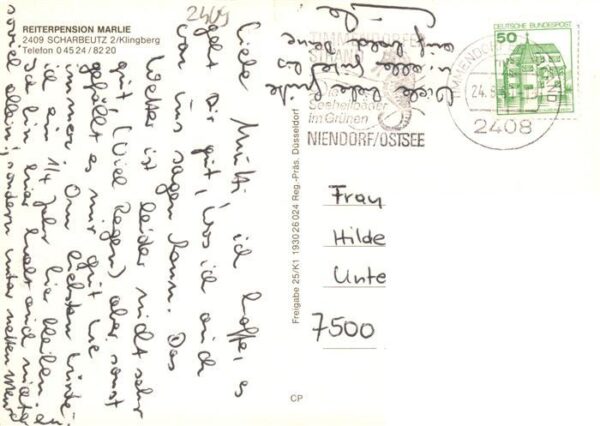 REITERPENSION MARLIE
2409 SCHARBEUTZ 2/Klingberg
Telefon 0 45 24 / 82 20
2409
Liebe Mutti, ich hoffe, es
geht Dir gut, was ich auch
von uns sagen kann. Das
Wetter ist leider nicht sehr
gut, (viel Regen) aber sonst
gefällt es mir gut wie
immer. Am liebsten würde
ich ein 1/4 Jahr hier bleiben.
Ich bin hier halt auch nicht
soviel allein, sondern unter netten Mensch
Viele liebe Grüße
u. alles Liebe bis
auf bald Deine
TIMMENDORFER
STRAND
Seeheilbäder
im Grünen
NIENDORF/OSTSEE
TIMMENDOR
STRAND
24.
2408
DEUTSCHE BUNDESPOST
50
Freigabe 25/K1 1930 26 024 Reg.-Präs. Düsseldorf
Frau
Hilde
Unte
7500
CP